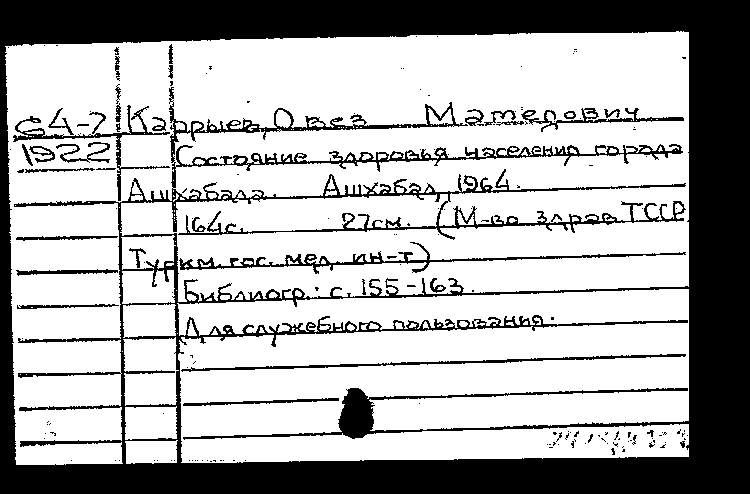 64-7 Каррыев, Овез Матедович
1922 Состояние здоровья населения города
Ашхабада. Ашхабад, 1964.
164с. 27см. (М-во здрав. ТССР.
Туркм. гос. мед. ин-т)
Библиогр.: с. 155-163.
Для служебного пользования.